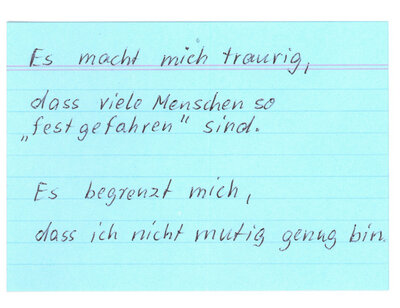 Es macht mich traurig,
dass viele Menschen so
„festgefahren" sind.
Es begrenzt mich,
dass ich nicht mutig genug bin.